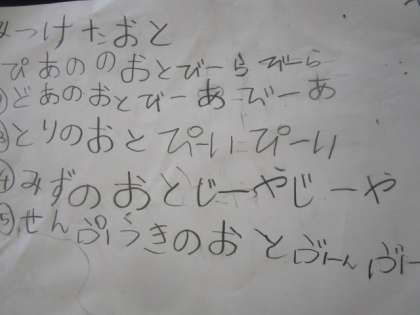 みつけたおと
ぴあののおとびーらびーら
どあのおとびーあびーあ
③とりのおとぴーいぴーい
④みずのおとじーやじーや
⑤せんぷうきのおとぶーんぶー